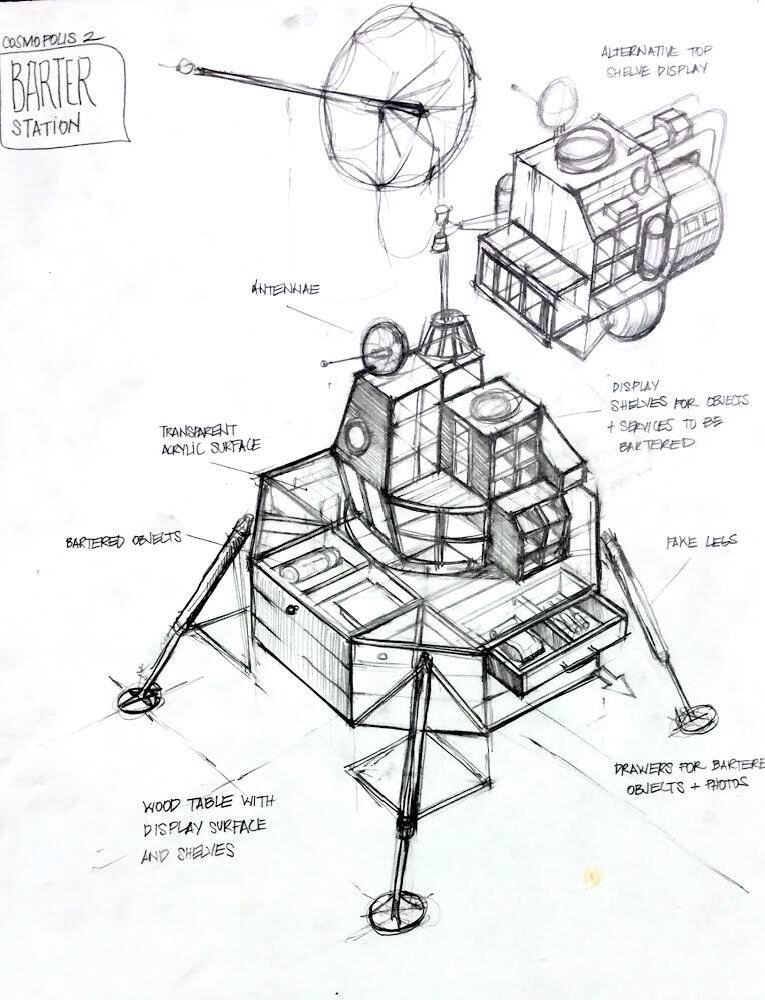 COSMOPOLIS 2
BARTER
STATION
ALTERNATIVE TOP
SHELVE DISPLAY
ANTENNAE
DISPLAY
SHELVES FOR OBJECTS
+ SERVICES TO BE
BARTERED
TRANSPARENT
ACRYLIC SURFACE
BARTERED OBJECTS
FAKE LEGS
DRAWERS FOR BARTERE
OBJECTS + PHOTOS
WOOD TABLE WITH
DISPLAY SURFACE
AND SHELVES